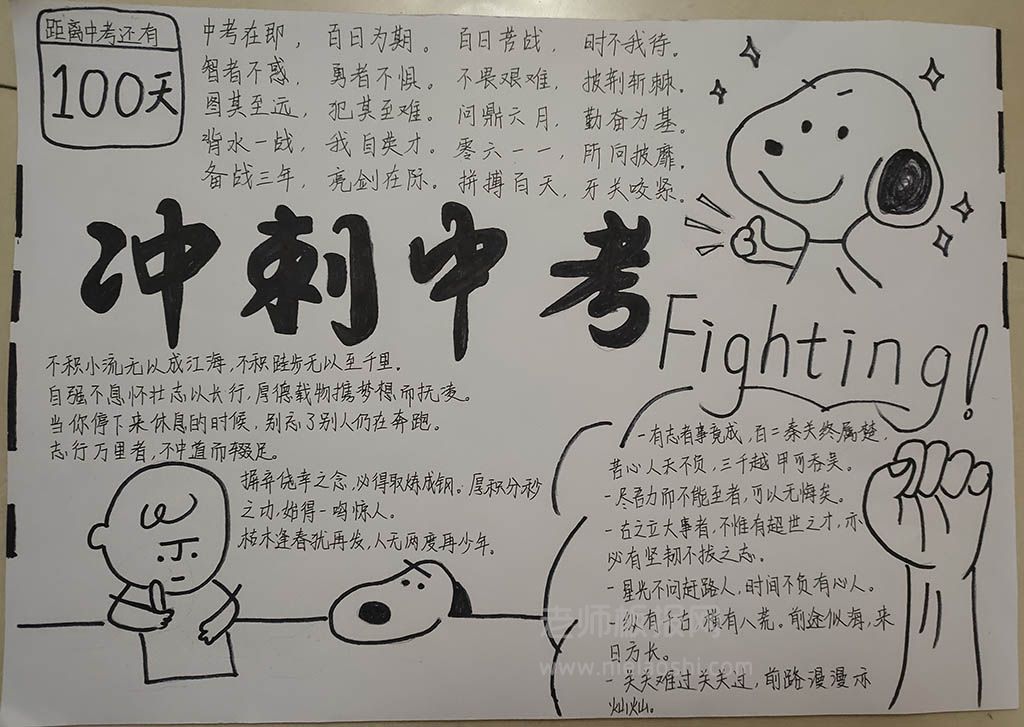 距离中考还有
100天
中考在即, 百日为期。 百日苦战, 时不我待。
智者不惑, 勇者不惧。 不畏艰难, 披荆斩棘。
图其至远, 犯其至难。 问鼎六月, 勤奋为基。
背水一战, 我自英才。 零六一一, 所向披靡。
备战三年, 亮剑在际。 拼搏百天, 牙关咬紧。
冲刺中考
Fighting!
不积小流无以成江海,不积跬步无以至千里。
自强不息怀壮志以长行,厚德载物携梦想而抚凌。
当你停下来休息的时候, 别忘了别人仍在奔跑。
志行万里者,不中道而辍足。
摒弃侥幸之念,必得取炼成钢。厚积分秒
之功,始得一鸣惊人。
枯木逢春犹再发,人无两度再少年。
-有志者事竟成,百二秦关终属楚,
苦心人天不负,三千越甲可吞吴。
-尽吾力而不能至者,可以无悔矣。
-古之立大事者,不惟有超世之才,亦
必有坚韧不拔之志。
-星光不问赶路人,时间不负有心人。
-纵有千古,横有八荒。前途似海,来
日方长。
-关关难过关关过,前路漫漫亦
灿灿。
老师板报网
www.mielaoshi.com